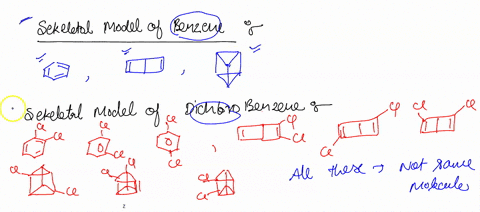 Sekeletal Model of Benzene
, ,
Sekeletal Model of Dichloro Benzene
Cl Cl Cl Cl Cl Cl Cl Cl Cl Cl Cl Cl
,
Cl Cl Cl Cl Cl
All these → Not same
Molecule